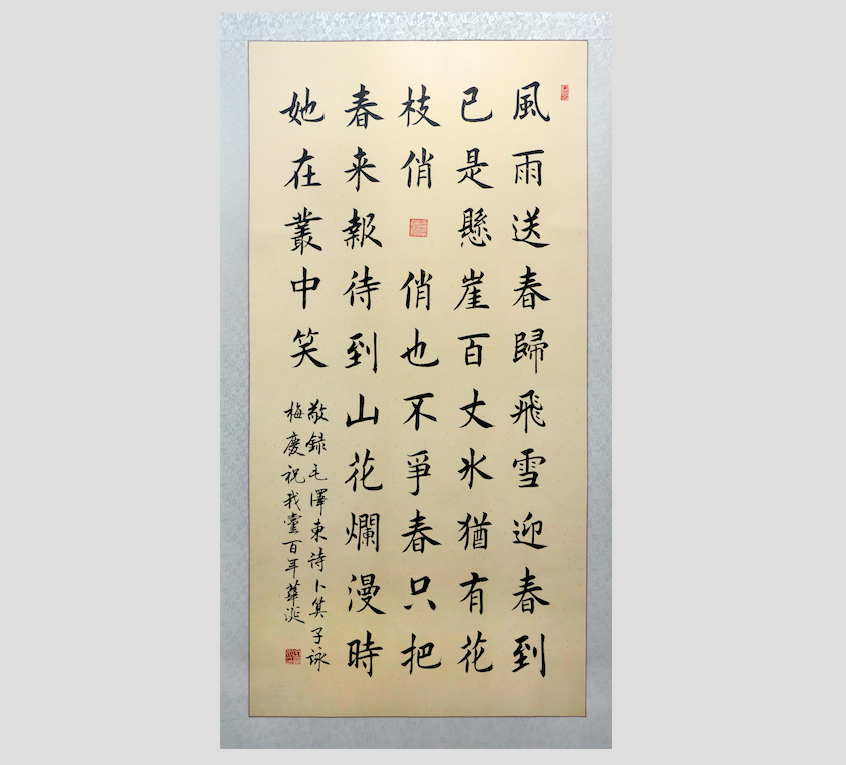 風雨送春歸飛雪迎春到
已是懸崖百丈氷猶有花
枝俏俏也不爭春只把
春来報待到山花爛漫時
她在叢中笑
敬録毛澤東诗卜算子詠
梅慶祝我黨百年華誕